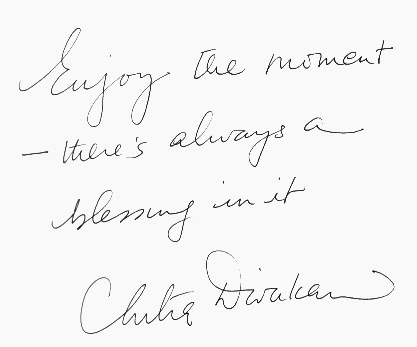 Enjoy the moment
— there's always a
blessing in it
Chitra Divakaru